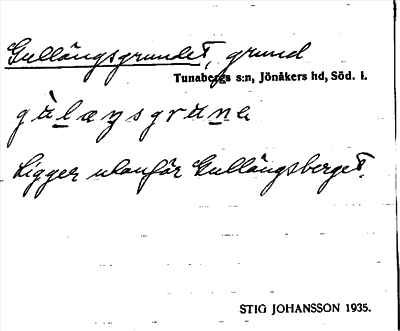 Gullängsgrundet, grund
Tunabergs s:n, Jönåkers hd, Söd. l.
Ligger utanför Gullängsberget.
STIG JOHANSSON 1935.